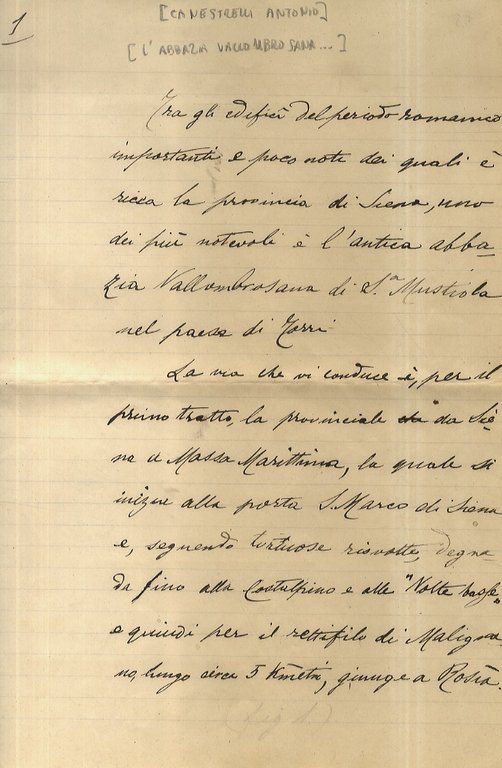 1
[CANESTRELLI ANTONIO]
[L'ABBAZIA VALLOMBROSANA...]
Tra gli edifici del periodo romanico
importanti e poco noti dei quali è
ricca la provincia di Siena, uno
dei più notevoli è l'antica abba-
zia Vallombrosana di S.ª Mustiola
nel paese di Torri
La via che vi conduce è, per il
primo tratto, la provinciale da Sie-
na a Massa Marittima, la quale si
inizia alla porta S. Marco di Siena
e, seguendo tortuose risvolte, degra-
da fino alla Costalpino e alle "Volte basse"
e quindi per il rettifilo di Malignia-
no, lungo circa 5 Kmetri, giunge a Rosia.
(fig 1.)